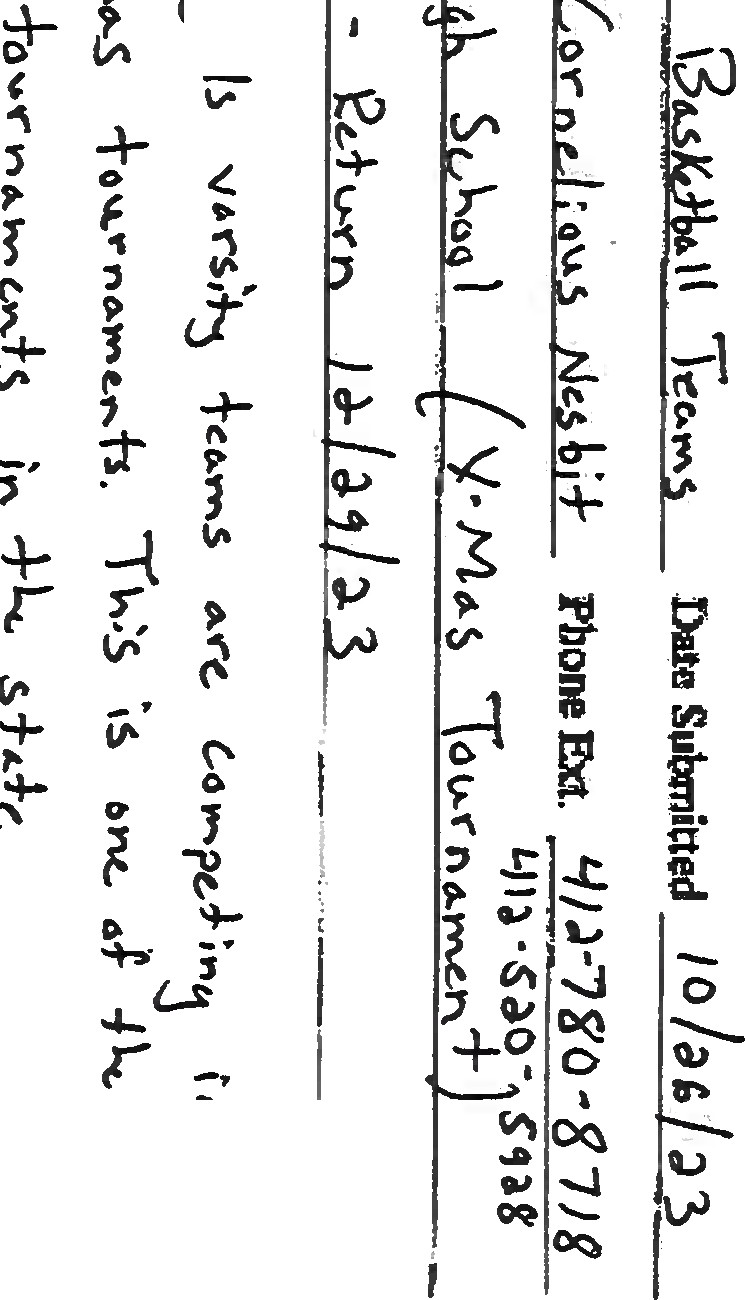 Basketball Teams Date Submitted 10/26/23
Cornelious Nesbit Phone Ext. 412-780-8718
412-520-5928
gh School (X-Mas Tournament)
- Return 12/29/23
Is varsity teams are competing i
as tournaments. This is one of the
tournaments in the state.